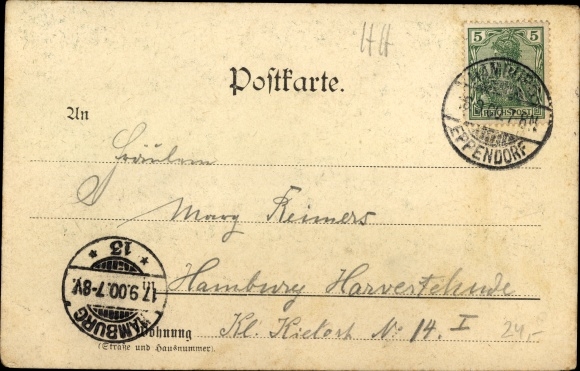 HH
5 5
REICHSPOST
HAMBURG
EPPENDORF
Postkarte.
An
Fräulein
Mary Reimers
Hamburg Harvestehude
Wohnung Kl. Kielort No 14. I
(Straße und Hausnummer).
24,-
* 13 *
17.9.00.7-8V.
HAMBURG